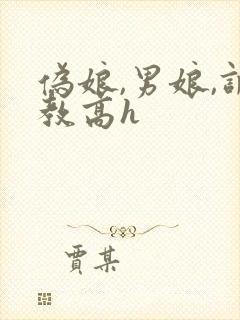 伪娘,男娘,
教高h
贾某